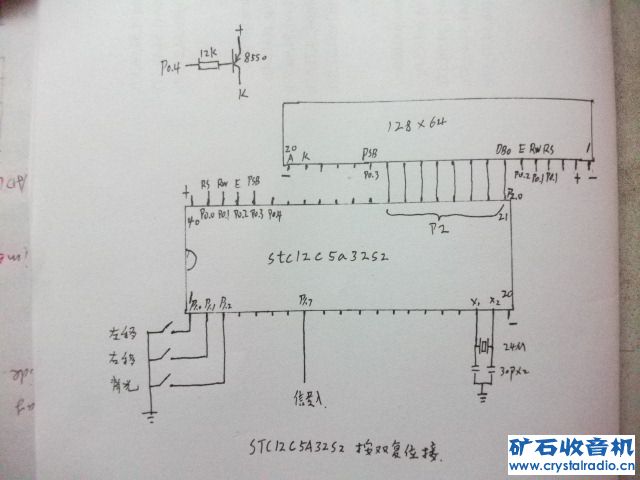 +
12K
P0.4
8550
K
128×64
20
1
A K PSB DB0 E RW RS
- P0.3 P0.2 P0.1 P0.1 + -
+ RS RW E PSB
P0.0 P0.1 P0.2 P0.3 P0.4
P2.0
40
P2
21
stc12c5a32s2
P1.0 P1.1 P1.2 P1.7 X1 X2 20
-
左移
右移
背光
24M
30P×2
信号入
STC12C5A32S2 按双复位接.
矿石收音机
www.crystalradio.cn